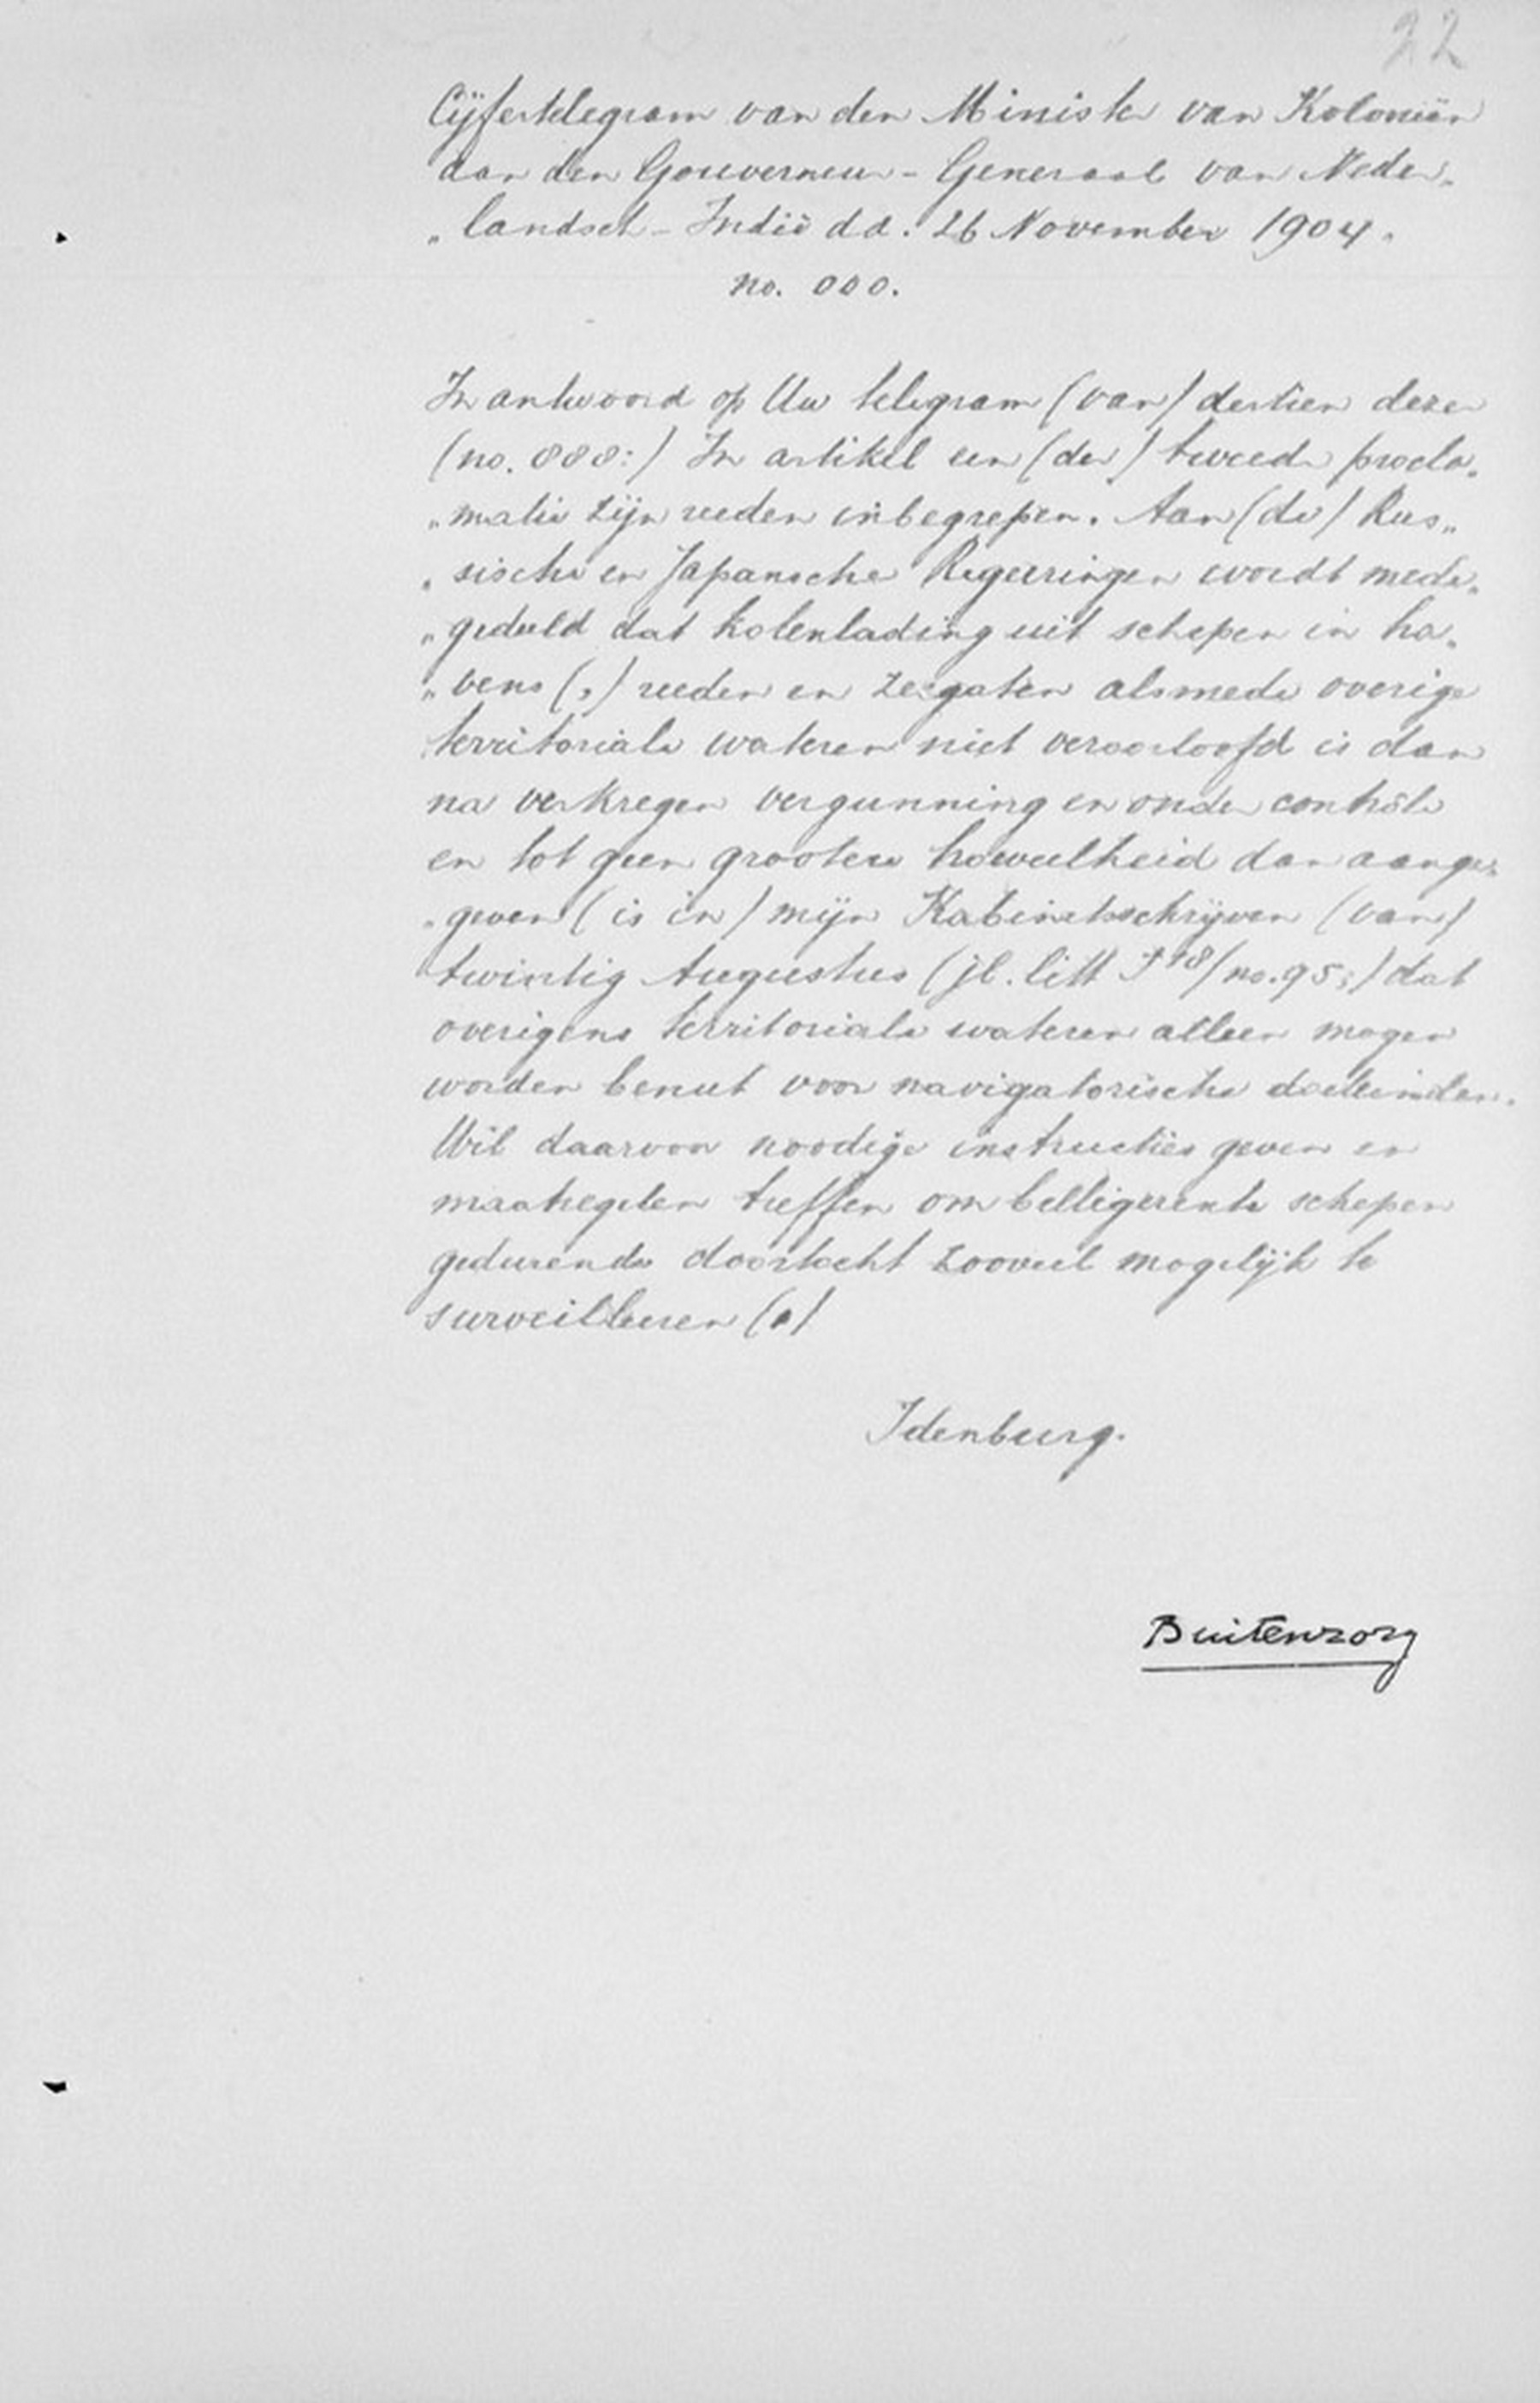 22
Cijfertelegram van den Minister van Koloniën
aan den Gouverneur-Generaal van Neder„
„landsch-Indië dd. 26 November 1904.
no. 000.
In antwoord op Uw telegram (van) dertien dezer
(no. 888:) In artikel een (der) tweede procla„
„matie zijn reeden inbegrepen. Aan (de) Rus„
„sische en Japansche Regeeringen wordt mede„
„gedeeld dat kolenlading uit schepen in ha„
„vens (,) reeden en zeegaten alsmede overige
territoriale wateren niet veroorloofd is dan
na verkregen vergunning en onder contrôle
en tot geen grootere hoeveelheid dan aange„
„geven (is in) mijn Kabinetsschrijven (van)
twintig Augustus (jl. litt 18/no. 95;) dat
overigens territoriale wateren alleen mogen
worden benut voor navigatorische doeleinden.
Wil daarvoor noodige instructiës geven en
maatregelen treffen om belligerente schepen
gedurende doortocht zooveel mogelijk te
surveilleeren (.)
Idenburg.
Buitenzorg